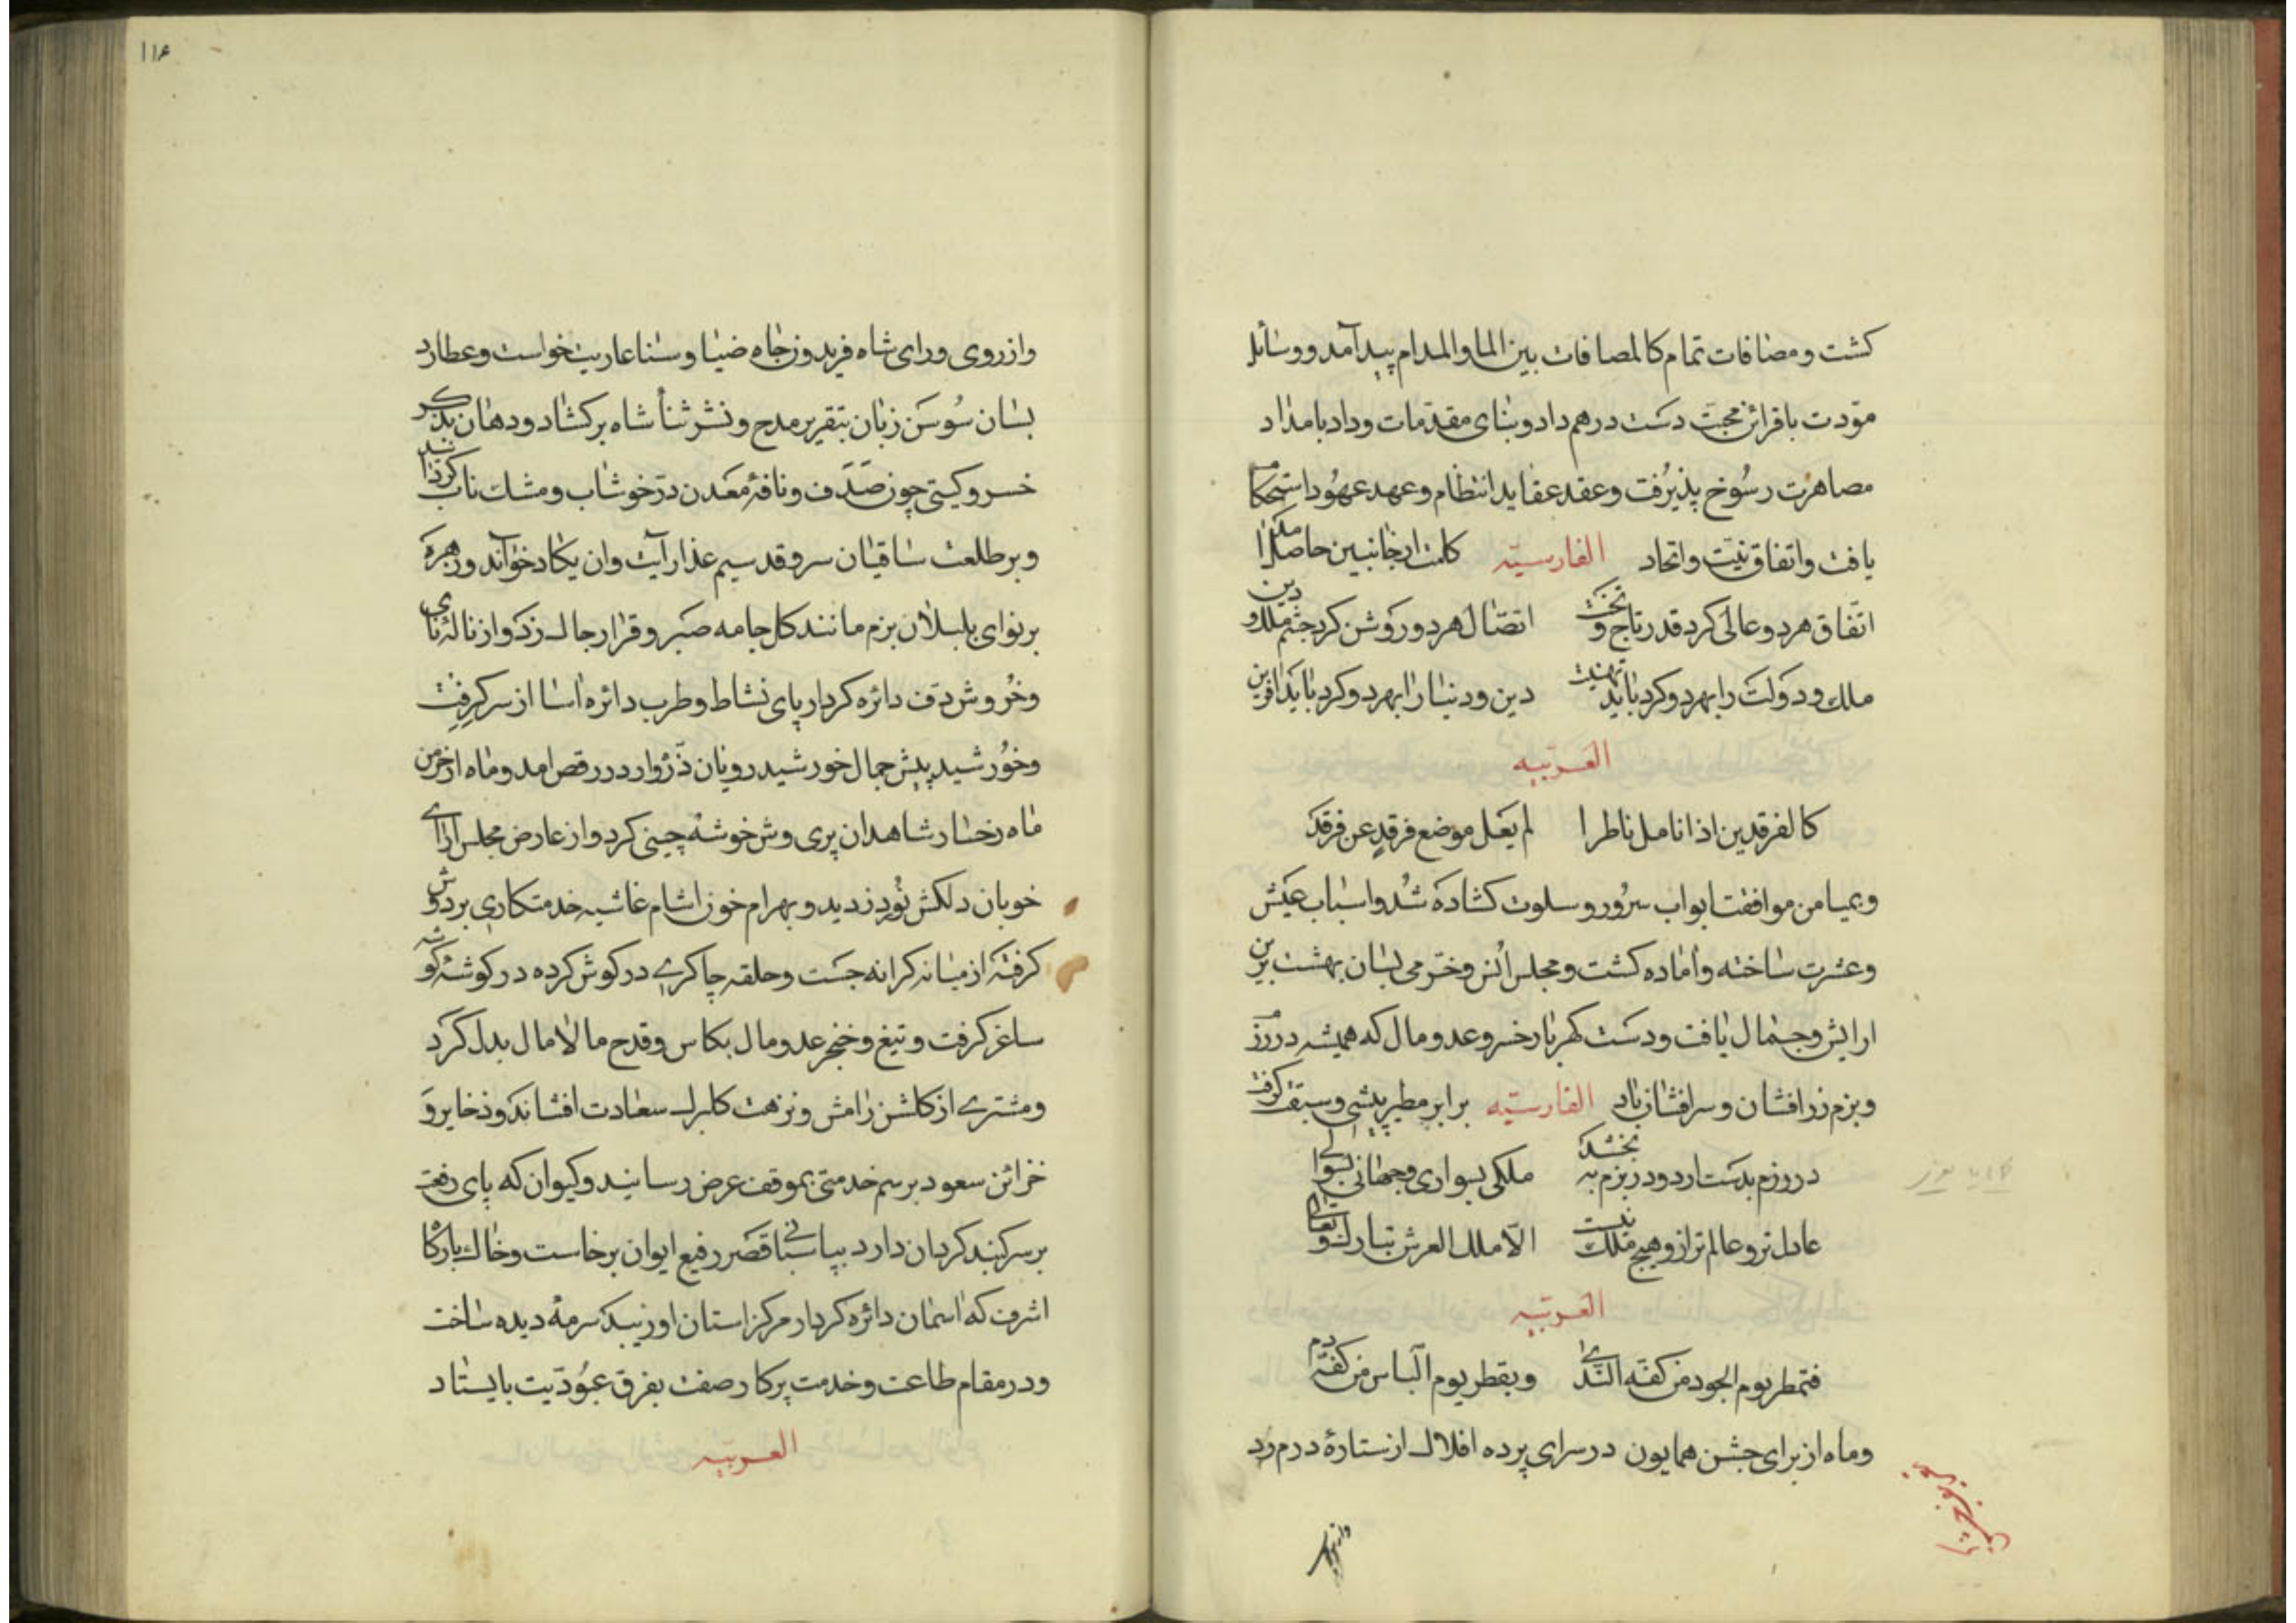 کشت و مصافات تمام کالمصافات بین الما والمدام پیدا آمد و وسائل
مودت باقرائن محبت دست درهم داد و بنای مقدمات وداد بامداد
مصاهرت رسوخ پذیرفت و عقد عقاید انتظام و عهد عهود استحکام
یافت و اتفاق نیت و اتحاد الفارسیّه کلمت از جانبین حاصل
اتفاق هر دو عالی کرد قدر تاج و تخت اتصال هر دو روشن کرد چشم ملک و دین
ملک و دولت را بهر دو کرد باید تهنیت دین و دنیا را بهر دو کرد باید آفرین
العربیّه
کالفرقدین اذا تامل ناظرا لم یعل موضع فرقد عن فرقد
و بمیامن موافقت ابواب سرور و سلوت کشاده شد و اسباب عیش
و عشرت ساخته و اماده کشت و مجلس انس و خرمی بسان بهشت برین
ارایش و جمال یافت و دست کهربار خسرو عدو مال که همیشه در رزم
و بزم زرافشان و سرافشان باد الفارسیّه برابر مطیر پیشی و سبقت کرفت
در رزم بدست ارد و در بزم ببخشد ملکی بسواری و جهانی بسوالی
عادل تر و عالم تر ازو هیچ ملک نیست الا ملک العرش تبارک و تعالی
العربیّه
فتمطر یوم الجود من کفه الندی و یقطر یوم الباس من کفه دم
و ماه از برای جشن همایون در سرای پرده افلاک از ستارهٔ درم زد
۱۱۶
و از روی و رای شاه فریدون جاه ضیا و سنا عاریت خواست و عطارد
بسان سوسن زبان بتقریر مدح و نشر ثنا شاه برکشاد و دهان بذکر
خسرو کیتی چون صدف و نافهٔ معدن در خوشاب و مشک ناب کردانید
و بر طلعت ساقیان سروقد سیم عذار آیت وان یکاد خواند و زهره
بر نوای بلبلان بزم مانند کل جامه صبر و قرار چاک زد و از نالهٔ نای
و خروش دف دائره کردار پای نشاط و طرب دائره اسا از سر کرفت
و خورشید پیش جمال خورشید رویان ذره وار در رقص امد و ماه از خرمن
ماه رخسار شاهدان پری وش خوشه چینی کرد و از عارض مجلس ارای
خوبان دلکش نور دزدید و بهرام خون اشام غاشیه خدمتکاری بر دوش
کرفته از میانه کرانه جست و حلقه چاکری در کوش کرده در کوشهٔ کوشه
ساغر کرفت و تیغ و خنجر عدو مال بکاس و قدح مالامال بدل کرد
و مشتری از کلشن رامش و نزهت کلبرک سعادت افشاند و ذخایر و
خزائن سعود برسم خدمتی بموقف عرض رسانید و کیوان که پای رفعت
بر سر کنبد کردان دارد بپاسبانی قصر رفیع ایوان برخاست و خاک بارکاه
اشرف که اسمان دائره کردار مرکز استان او زیبد سرمهٔ دیده ساخت
و در مقام طاعت و خدمت پرکار صفت بفرق عبودیت بایستاد
العربیّه